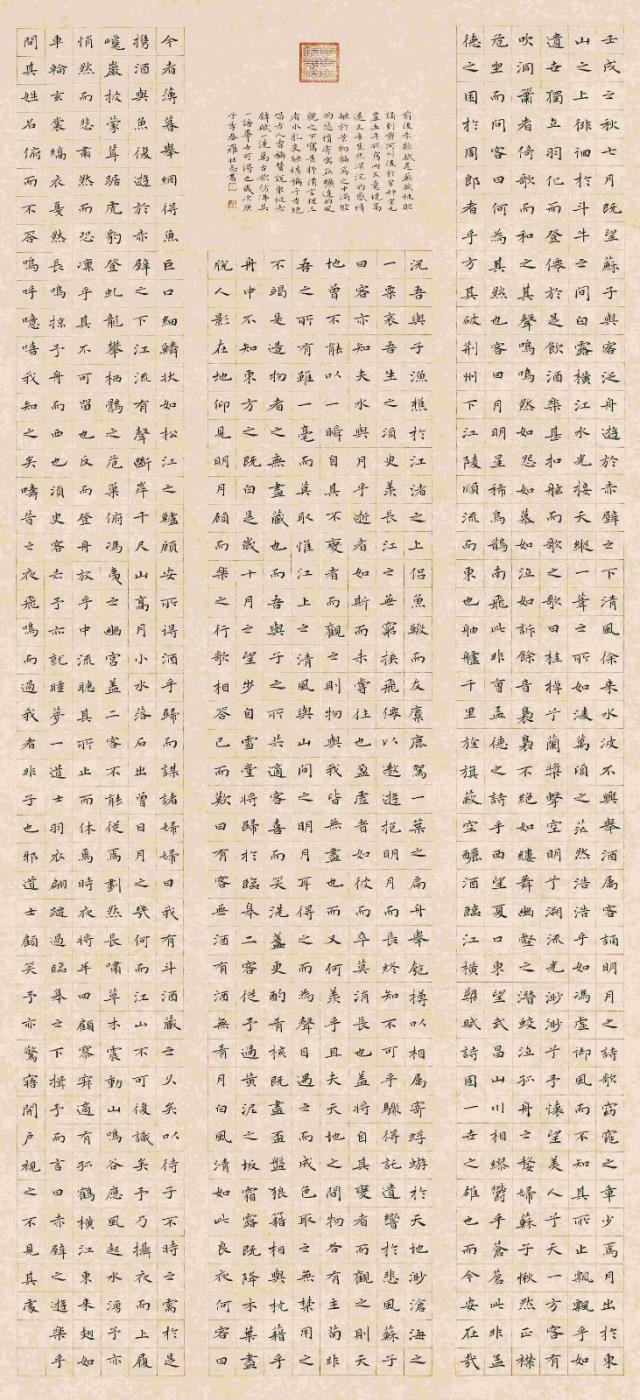 壬戌之秋七月既望蘇子與客泛舟遊於赤壁之下清風徐来水波不興舉酒属客誦明月之詩歌窈窕之章少焉月出於東
山之上徘徊於斗牛之間白露橫江水光接天縱一葦之所如凌萬頃之茫然浩浩乎如馮虛御風而不知其所止飄飄乎如
遺世獨立羽化而登僊於是飲酒樂甚扣舷而歌之歌曰桂棹兮蘭槳擊空明兮溯流光渺渺兮予懷望美人兮天一方客有
吹洞簫者倚歌而和之其聲嗚嗚然如怨如慕如泣如訴餘音裊裊不絕如縷舞幽壑之潛蛟泣孤舟之嫠婦蘇子愀然正襟
危坐而問客曰何為其然也客曰月明星稀烏鵲南飛此非曹孟德之詩乎西望夏口東望武昌山川相繆鬱乎蒼蒼此非孟
德之困於周郎者乎方其破荊州下江陵順流而東也舳艫千里旌旗蔽空釃酒臨江橫槊賦詩固一世之雄也而今安在哉
前後赤壁賦是蘇軾被貶
況吾與子漁樵於江渚之上侶魚蝦而友麋鹿駕一葉之扁舟舉匏樽以相属寄蜉蝣於天地渺滄海之
一粟哀吾生之須臾羨長江之無窮挾飛僊以遨遊抱明月而長終知不可乎驟得託遺響於悲風蘇子
曰客亦知夫水與月乎逝者如斯而未嘗往也盈虛者如彼而卒莫消長也蓋將自其變者而觀之則天
地曾不能以一瞬自其不變者而觀之則物與我皆無盡也而又何羨乎且夫天地之間物各有主苟非
吾之所有雖一毫而莫取惟江上之清風與山間之明月耳得之而為聲目遇之而成色取之無禁用之
不竭是造物者之無盡藏也而吾與子之所共適客喜而笑洗盞更酌肴核既盡盃盤狼籍相與枕藉乎
舟中不知東方之既白是歲十月之望步自雪堂將歸於臨皋二客從予過黃泥之坂霜露既降木葉盡
脫人影在地仰見明月顧而樂之行歌相答已而歎曰有客無酒有酒無肴月白風清如此良夜何客曰
今者薄暮舉網得魚巨口細鱗狀如松江之鱸顧安所得酒乎歸而謀諸婦婦曰我有斗酒藏之久矣以待子不時之需於是
携酒與魚復遊於赤壁之下江流有聲斷岸千尺山高月小水落石出曾日月之幾何而江山不可復識矣予乃攝衣而上履
巉巖披蒙茸踞虎豹登虬龍攀栖鶻之危巢俯馮夷之幽宮蓋二客不能從焉劃然長嘯草木震動山鳴谷應風起水湧予亦
悄然而悲肅然而恐凜乎其不可留也反而登舟放乎中流聽其所止而休焉時夜將半四顧寂寥適有孤鶴橫江東来翅如
車輪玄裳縞衣戛然長鳴掠予舟而西也須臾客去予亦就睡夢一道士羽衣翩躚過臨皋之下揖予而言曰赤壁之遊樂乎
問其姓名俯而不答嗚呼噫嘻我知之矣疇昔之夜飛鳴而過我者非子也邪道士顧笑予亦驚寤開戶視之不見其處